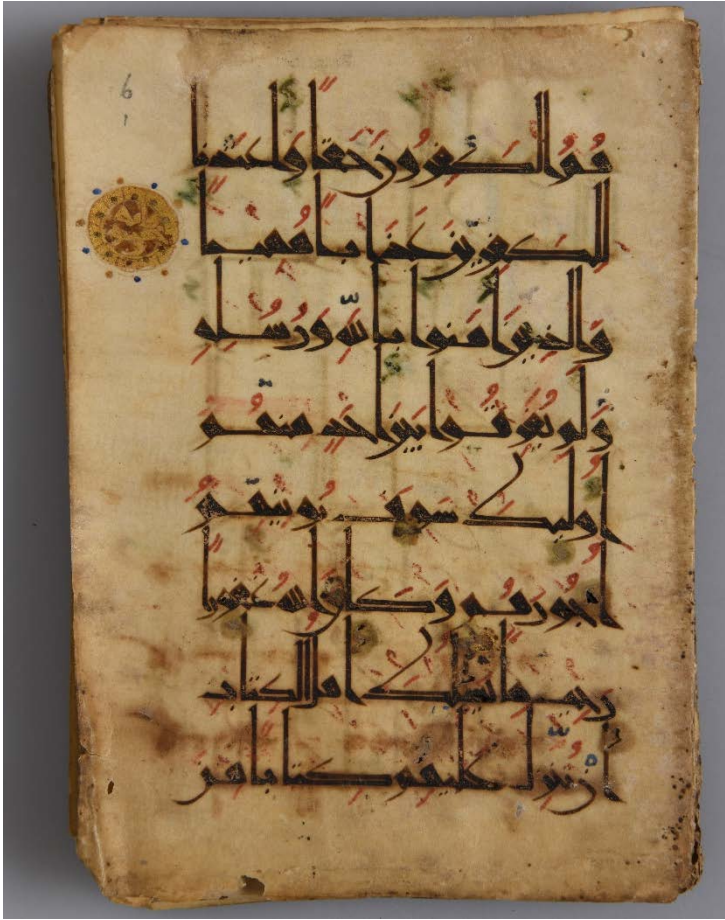 6
1
هُمُ الكفرون حَقًّا وَاعتدنا
للكفرين عَذَابًا مُهينًا
وَالذين اٰمَنوا بِاللّٰهِ وَرُسُلِهِ
وَلَم يُفَرّقُوا بَينَ اَحَدٍ مِنهُم
اُولئكَ سَوفَ يُوتيهِم
اُجُورَهُم وَكَانَ اللهُ غَفُورًا
رَحيمًا يَسئلُكَ اَهلُ الكِتَابِ
اَن تُنَزّلَ عَلَيهِم كِتَابًا مِنَ